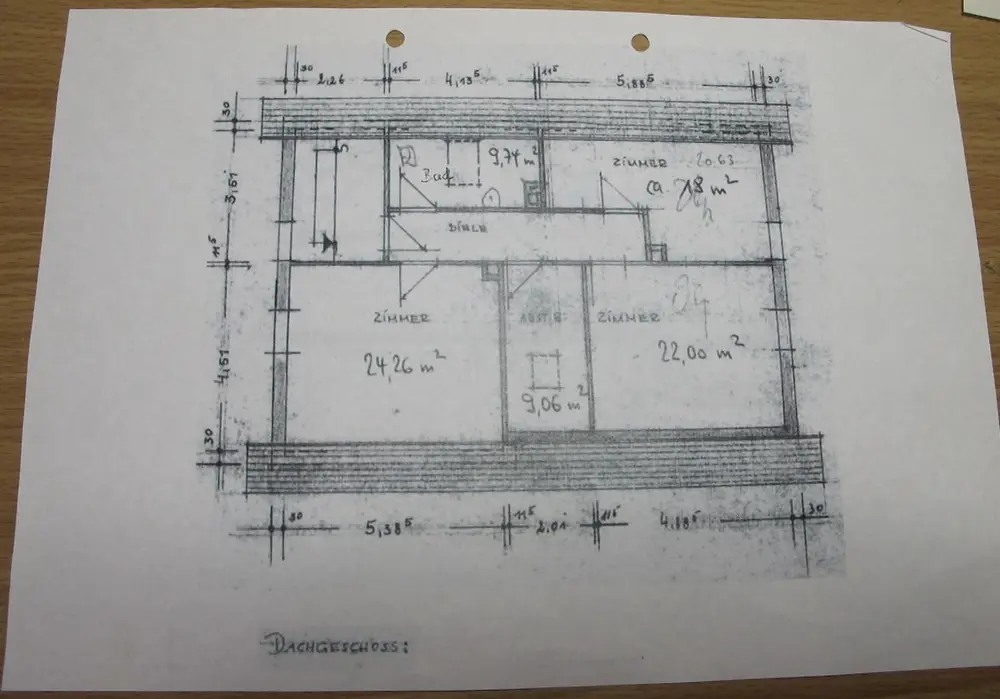 30 2,26 11⁵ 4,13⁵ 11⁵ 5,88⁵ 30
30
3,51
11⁵
4,51
30
Bad
9,74 m²
ZIMMER 20,63
ca. 18 m²
DIELE
ZIMMER
24,26 m²
ABSTR.
9,06 m²
ZIMMER
22,00 m²
30 5,38⁵ 11⁵ 2,01 11⁵ 4,88⁵ 30
DACHGESCHOSS: